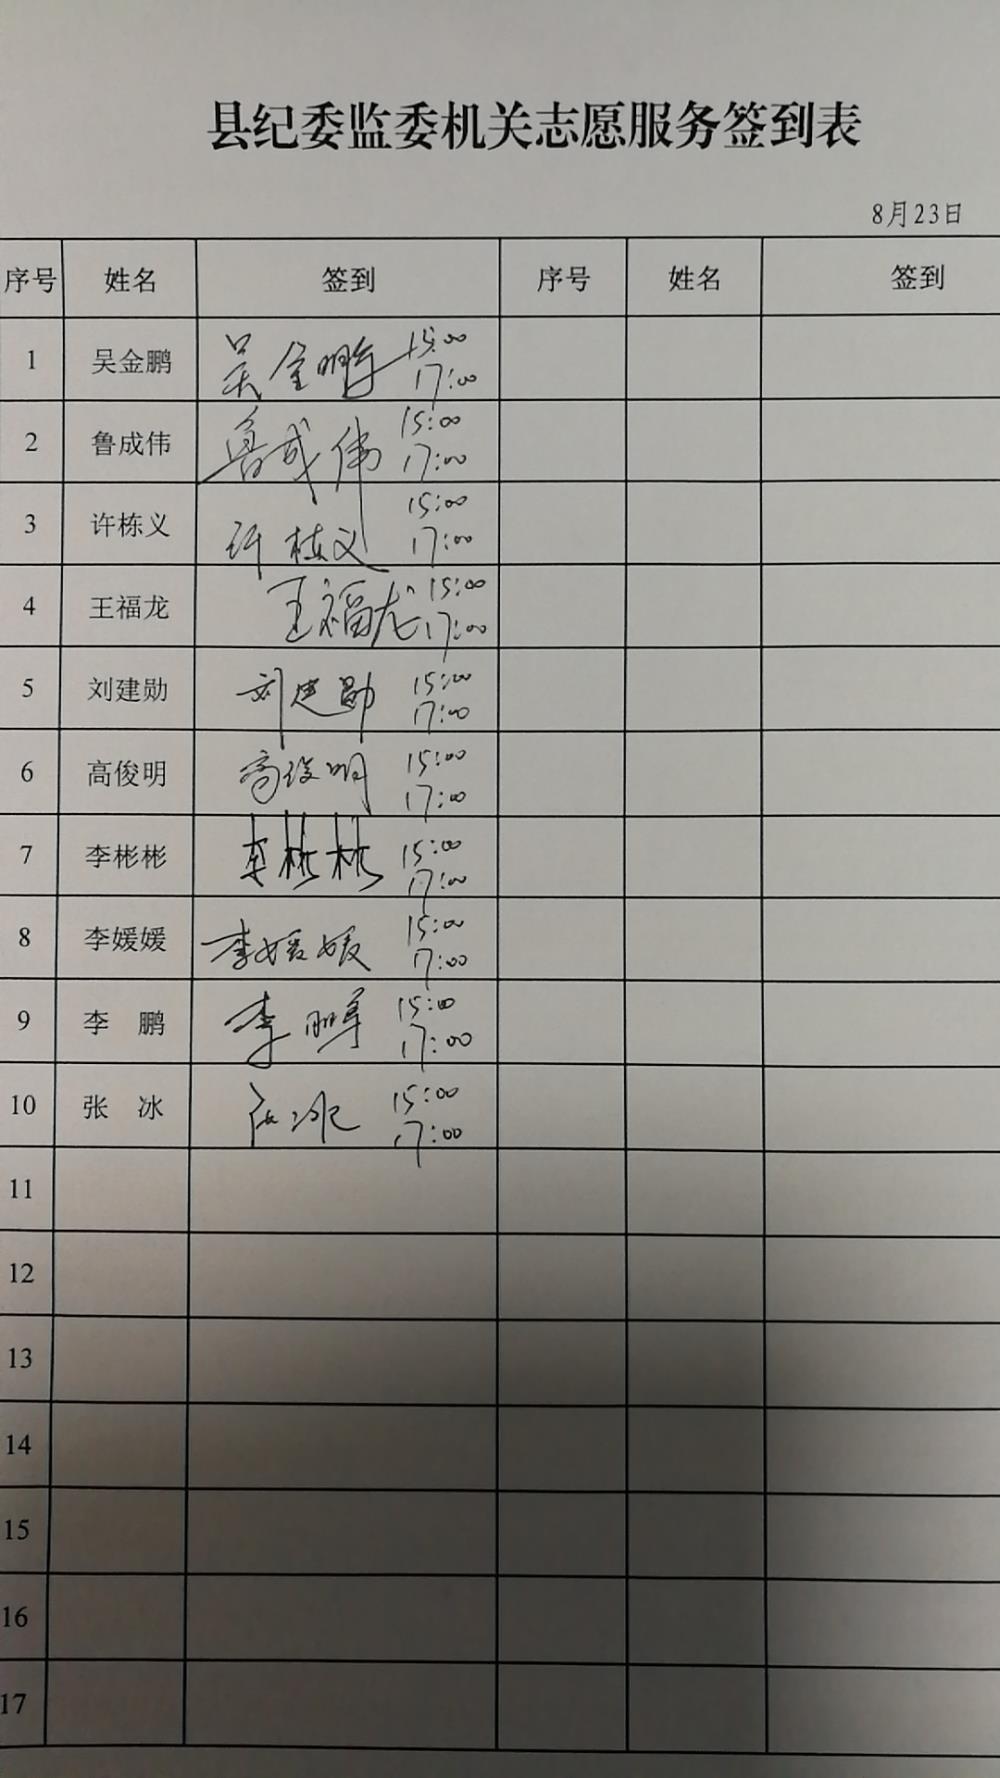 县纪委监委机关志愿服务签到表
8月23日
序号 姓名 签到 序号 姓名 签到
1 吴金鹏 吴金鹏 15:00 17:00
2 鲁成伟 鲁成伟 15:00 17:00
3 许栋义 许栋义 15:00 17:00
4 王福龙 王福龙 15:00 17:00
5 刘建勋 刘建勋 15:00 17:00
6 高俊明 高俊明 15:00 17:00
7 李彬彬 李彬彬 15:00 17:00
8 李媛媛 李媛媛 15:00 17:00
9 李 鹏 李鹏 15:00 17:00
10 张 冰 张冰 15:00 17:00
11
12
13
14
15
16
17